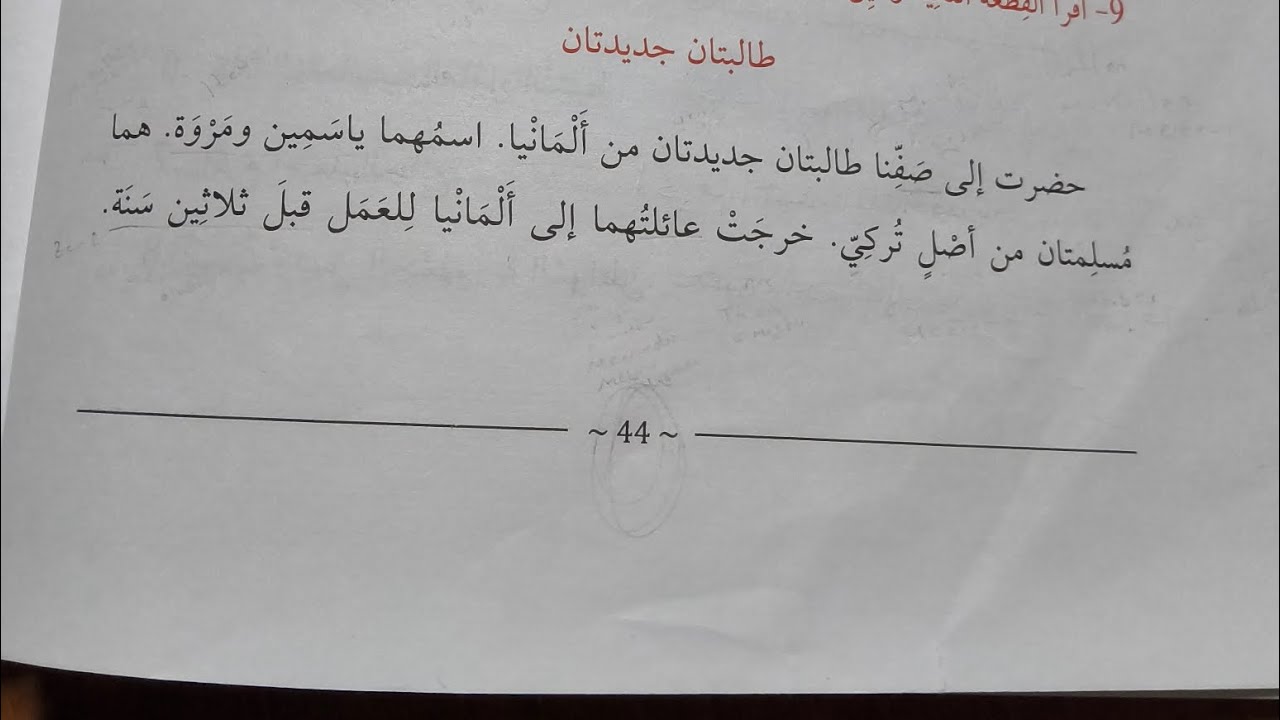 9- اقرأ القِطعة
طالبتان جديدتان
حضرت إلى صَفِّنا طالبتان جديدتان من أَلْمَانْيا. اسمُهما ياسَمِين ومَرْوَة. هما
مُسلِمتان من أصْلٍ تُركِيّ. خرجَتْ عائلتُهما إلى أَلْمَانْيا لِلعَمَل قبلَ ثلاثِين سَنَة.
~ 44 ~